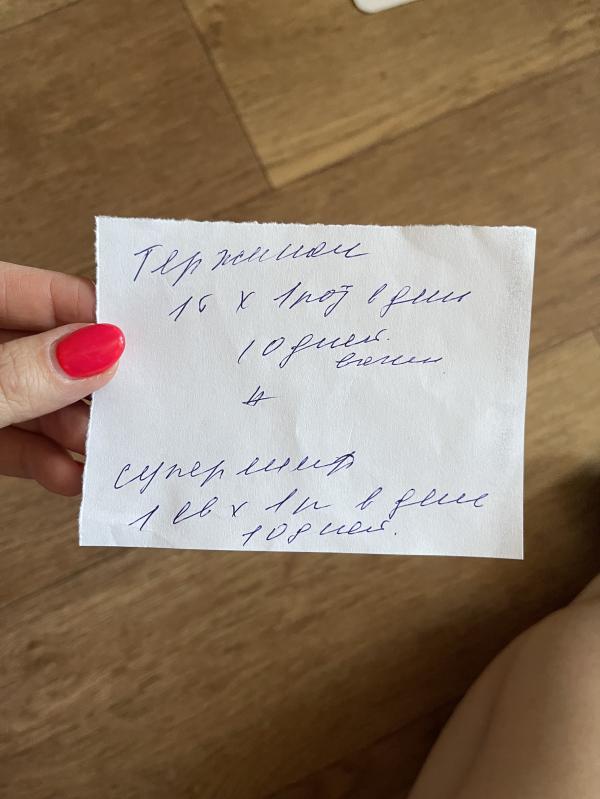 Тержинан
1т х 1 раз в день
10 дней
вагин
#
суперлимф
1 св х 1 р в день
10 дней.